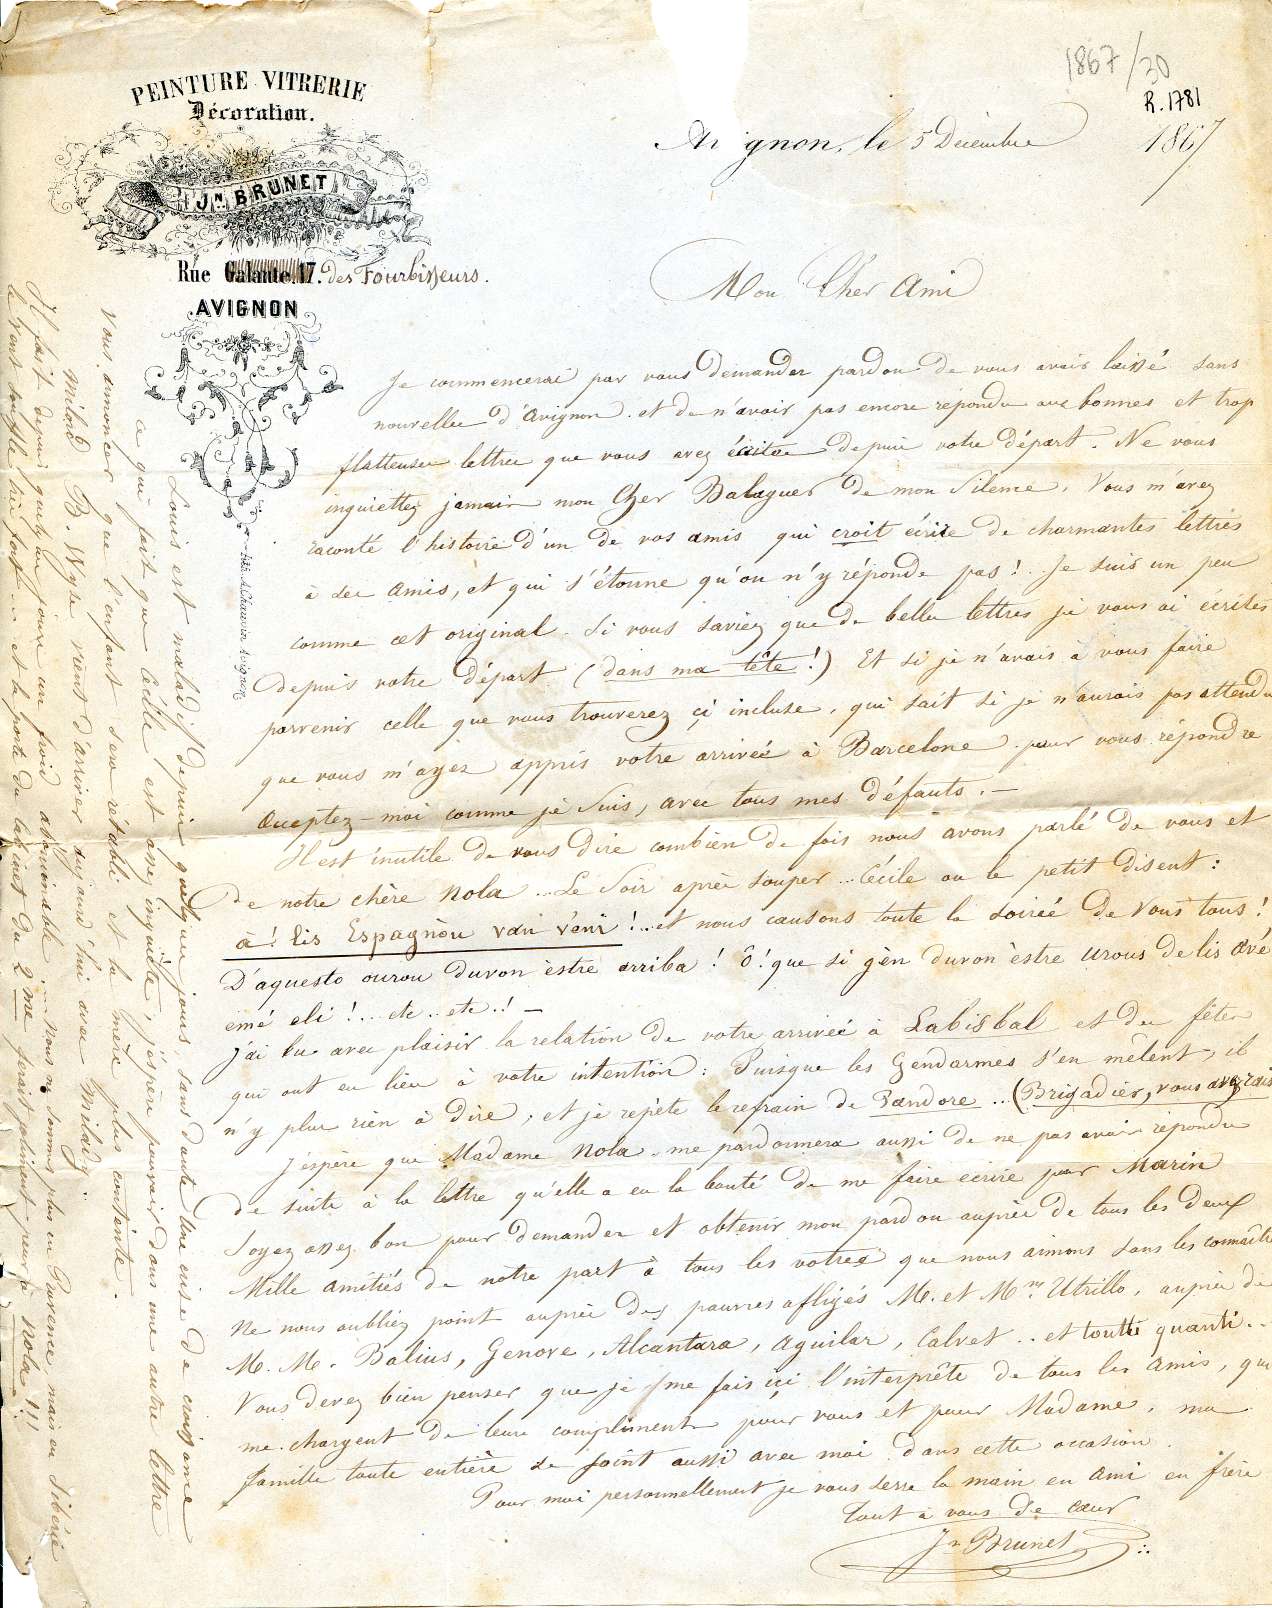 1867/30
R.1781
PEINTURE VITRERIE
Décoration.
JN BRUNET
Rue Galante.17. des Fourbisseurs.
AVIGNON
Avignon, le 5 Décembre 1867
Mon Cher Ami
Je commencerai par vous demander pardon de vous avoir laissé sans
nouvelles d'Avignon. et de n'avoir pas encore répondu aux bonnes et trop
flatteuses lettres que vous avez écrites depuis votre départ. Ne vous
inquiettez jamais mon Cher Balaguer de mon Silence, Vous m'avez
raconté l'histoire d'un de vos amis qui croit écrire de charmantes lettres
à ses amis, et qui s'étonne qu'on n'y réponde pas! Je suis un peu
comme cet original. Si vous saviez que de belles lettres je vous ai écrites
depuis votre départ (dans ma tête!) Et si je n'avais à vous faire
parvenir celle que vous trouverez çi incluse, qui sait si je n'aurais pas attendu
que vous m'ayez appris votre arrivée à Barcelone pour vous répondre
acceptez-moi comme je Suis, avec tous mes défauts. —
Il est inutile de vous dire combien de fois nous avons parlé de vous et
de notre chère Nola ... Le Soir après souper ... Cécile ou le petit disent:
à! lis Espagnòu van vèni! .. et nous causons toute la soirée de vous tous!
D'aquesto ouro duvon èstre arriba! ô! que si gèn duvon èstre urous de lis avé
emé eli! ... etc .. etc..! —
J'ai lu avec plaisir la relation de votre arrivée à Labisbal et des fêtes
qui ont eu lieu à votre intention: Puisque les Gendarmes s'en mêlent, il
n'y plus rien à dire, et je repète le refrain de Pandore .. (Brigadier, vous avez rais
J'espère que Madame Nola me pardonnera aussi de ne pas avoir répondu
de suite à la lettre qu'elle a eu la bonté de me faire écrire par Marin
Soyez assez bon pour demander et obtenir mon pardon auprès de tous les deux
Mille amitiés de notre part à tous les votres que nous aimons sans les connaître
Ne nous oubliez point auprès des pauvres afligés M. et Mme Utrillo, auprès de
M. M. Balius, Genove, Alcantara, Aguilar, Calvet .. et toutti quanti ..
Vous devez bien penser que je me fais içi l'interprète de tous les amis, qui
me chargent de leurs compliments pour vous et pour Madame, ma
famille toute entière se joint aussi avec moi dans cette occasion.
Pour moi personnellement je vous serre la main en ami en frère
Tout à vous de cœur
Jn Brunet
Louis est malade depuis quelques jours, sans doute une crise de croissance
ce qui fait que Cécile est assez inquiète, j'espère pouvoir dans une autre lettre
vous annoncer que l'enfant sera rétabli et la mère plus contente.
Milord B. Wyse vient d'arriver aujourd'hui avec Milady.
Il fait depuis quelques jours un froid abominable, .... nous ne sommes plus en Provence, mais en Sibérie
le vent souffle très fort .... et la porte du cabinet du 2me ferait joliment peur à Nola!!!